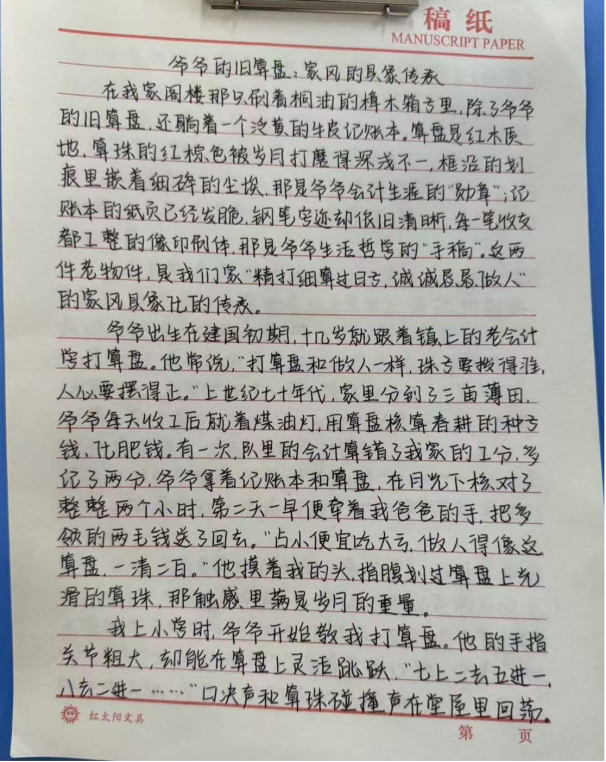 稿纸
MANUSCRIPT PAPER
爷爷的旧算盘：家风的具象传承
在我家阁楼那只刷着桐油的樟木箱子里，除了爷爷
的旧算盘，还躺着一个泛黄的牛皮记账本。算盘是红木质
地，算珠的红棕色被岁月打磨得深浅不一，框沿的划
痕里嵌着细碎的尘埃，那是爷爷会计生涯的“勋章”；记
账本的纸页已经发脆，钢笔字迹却依旧清晰，每一笔收支
都工整的像印刷体，那是爷爷生活哲学的“手稿”。这两
件老物件，是我们家“精打细算过日子，诚诚恳恳做人”
的家风具象化的传承。
爷爷出生在建国初期，十几岁就跟着镇上的老会计
学打算盘。他常说，“打算盘和做人一样，珠子要拨得准，
人心要摆得正。”上世纪七十年代，家里分到了三亩薄田，
爷爷每天收工后就着煤油灯，用算盘核算春耕的种子
钱、化肥钱。有一次，队里的会计算错了我家的工分，多
记了两分，爷爷拿着记账本和算盘，在月光下核对了
整整两个小时，第二天一早便牵着我爸爸的手，把多
领的两毛钱送了回去。“占小便宜吃大亏，做人得像这
算盘，一清二白。”他摸着我的头，指腹划过算盘上光
滑的算珠，那触感里藏是岁月的重量。
我上小学时，爷爷开始教我打算盘。他的手指
关节粗大，却能在算盘上灵活跳跃，“七上二去五进一，
八去二进一……”口决声和算珠碰撞声在堂屋里回荡。
红太阳文具
第 页